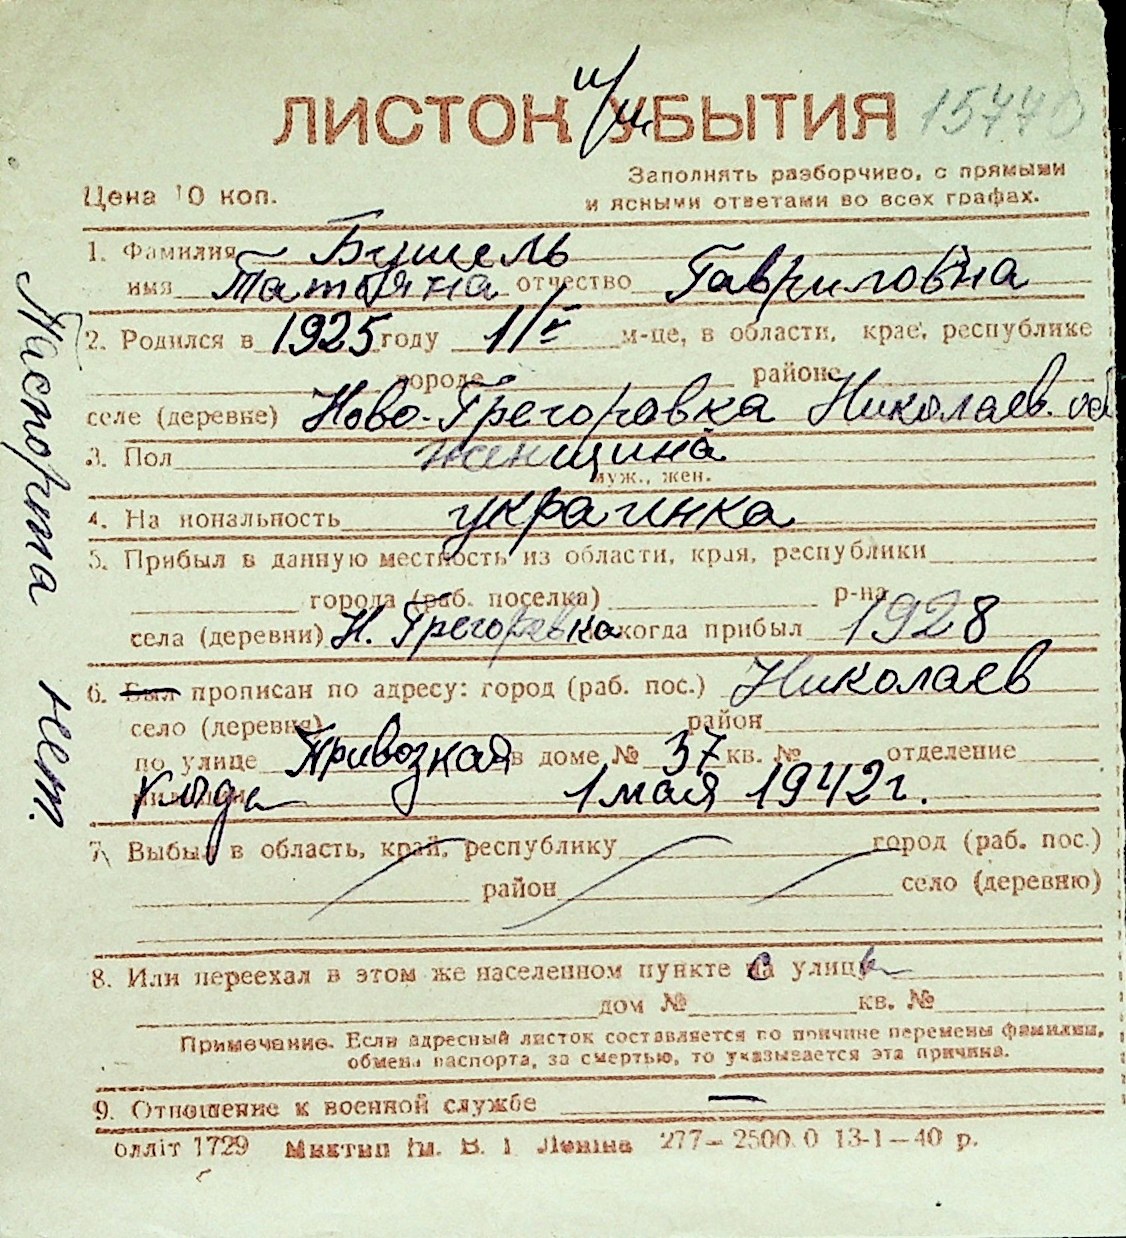 ЛИСТОК УБЫТИЯ 15440
Заполнять разборчиво, с прямыми
Цена 10 коп. и ясными ответами во всех графах.
1. Фамилия Бушель
имя Татьяна отчество Гавриловна
2. Родился в 1925 году 11 м-це, в области, крае, республике
городе районе
селе (деревне) Ново-Грегоровка Николаев. обл
3. Пол женщина
муж., жен.
4. На иональность украинка
5. Прибыл в данную местность из области, края, республики
города (раб. поселка) р-на
села (деревни) Н. Грегоревка и когда прибыл 1928
6. Был прописан по адресу: город (раб. пос.) Николаев
село (деревня) район
по улице Привозкая в доме № 37 кв. № отделение
милиции когда 1 мая 1942 г.
7. Выбыл в область, край, республику город (раб. пос.)
район село (деревню)
8. Или переехал в этом же населенном пункте с улицы
дом № кв. №
Примечание. Если адресный листок составляется по причине перемены фамилии,
обмена паспорта, за смертью, то указывается эта причина.
9. Отношение к военной службе —
олліт 1729 Миктип ім. В. І Леніна 277—2500.0 13-1—40 р.
Паспорта нет.